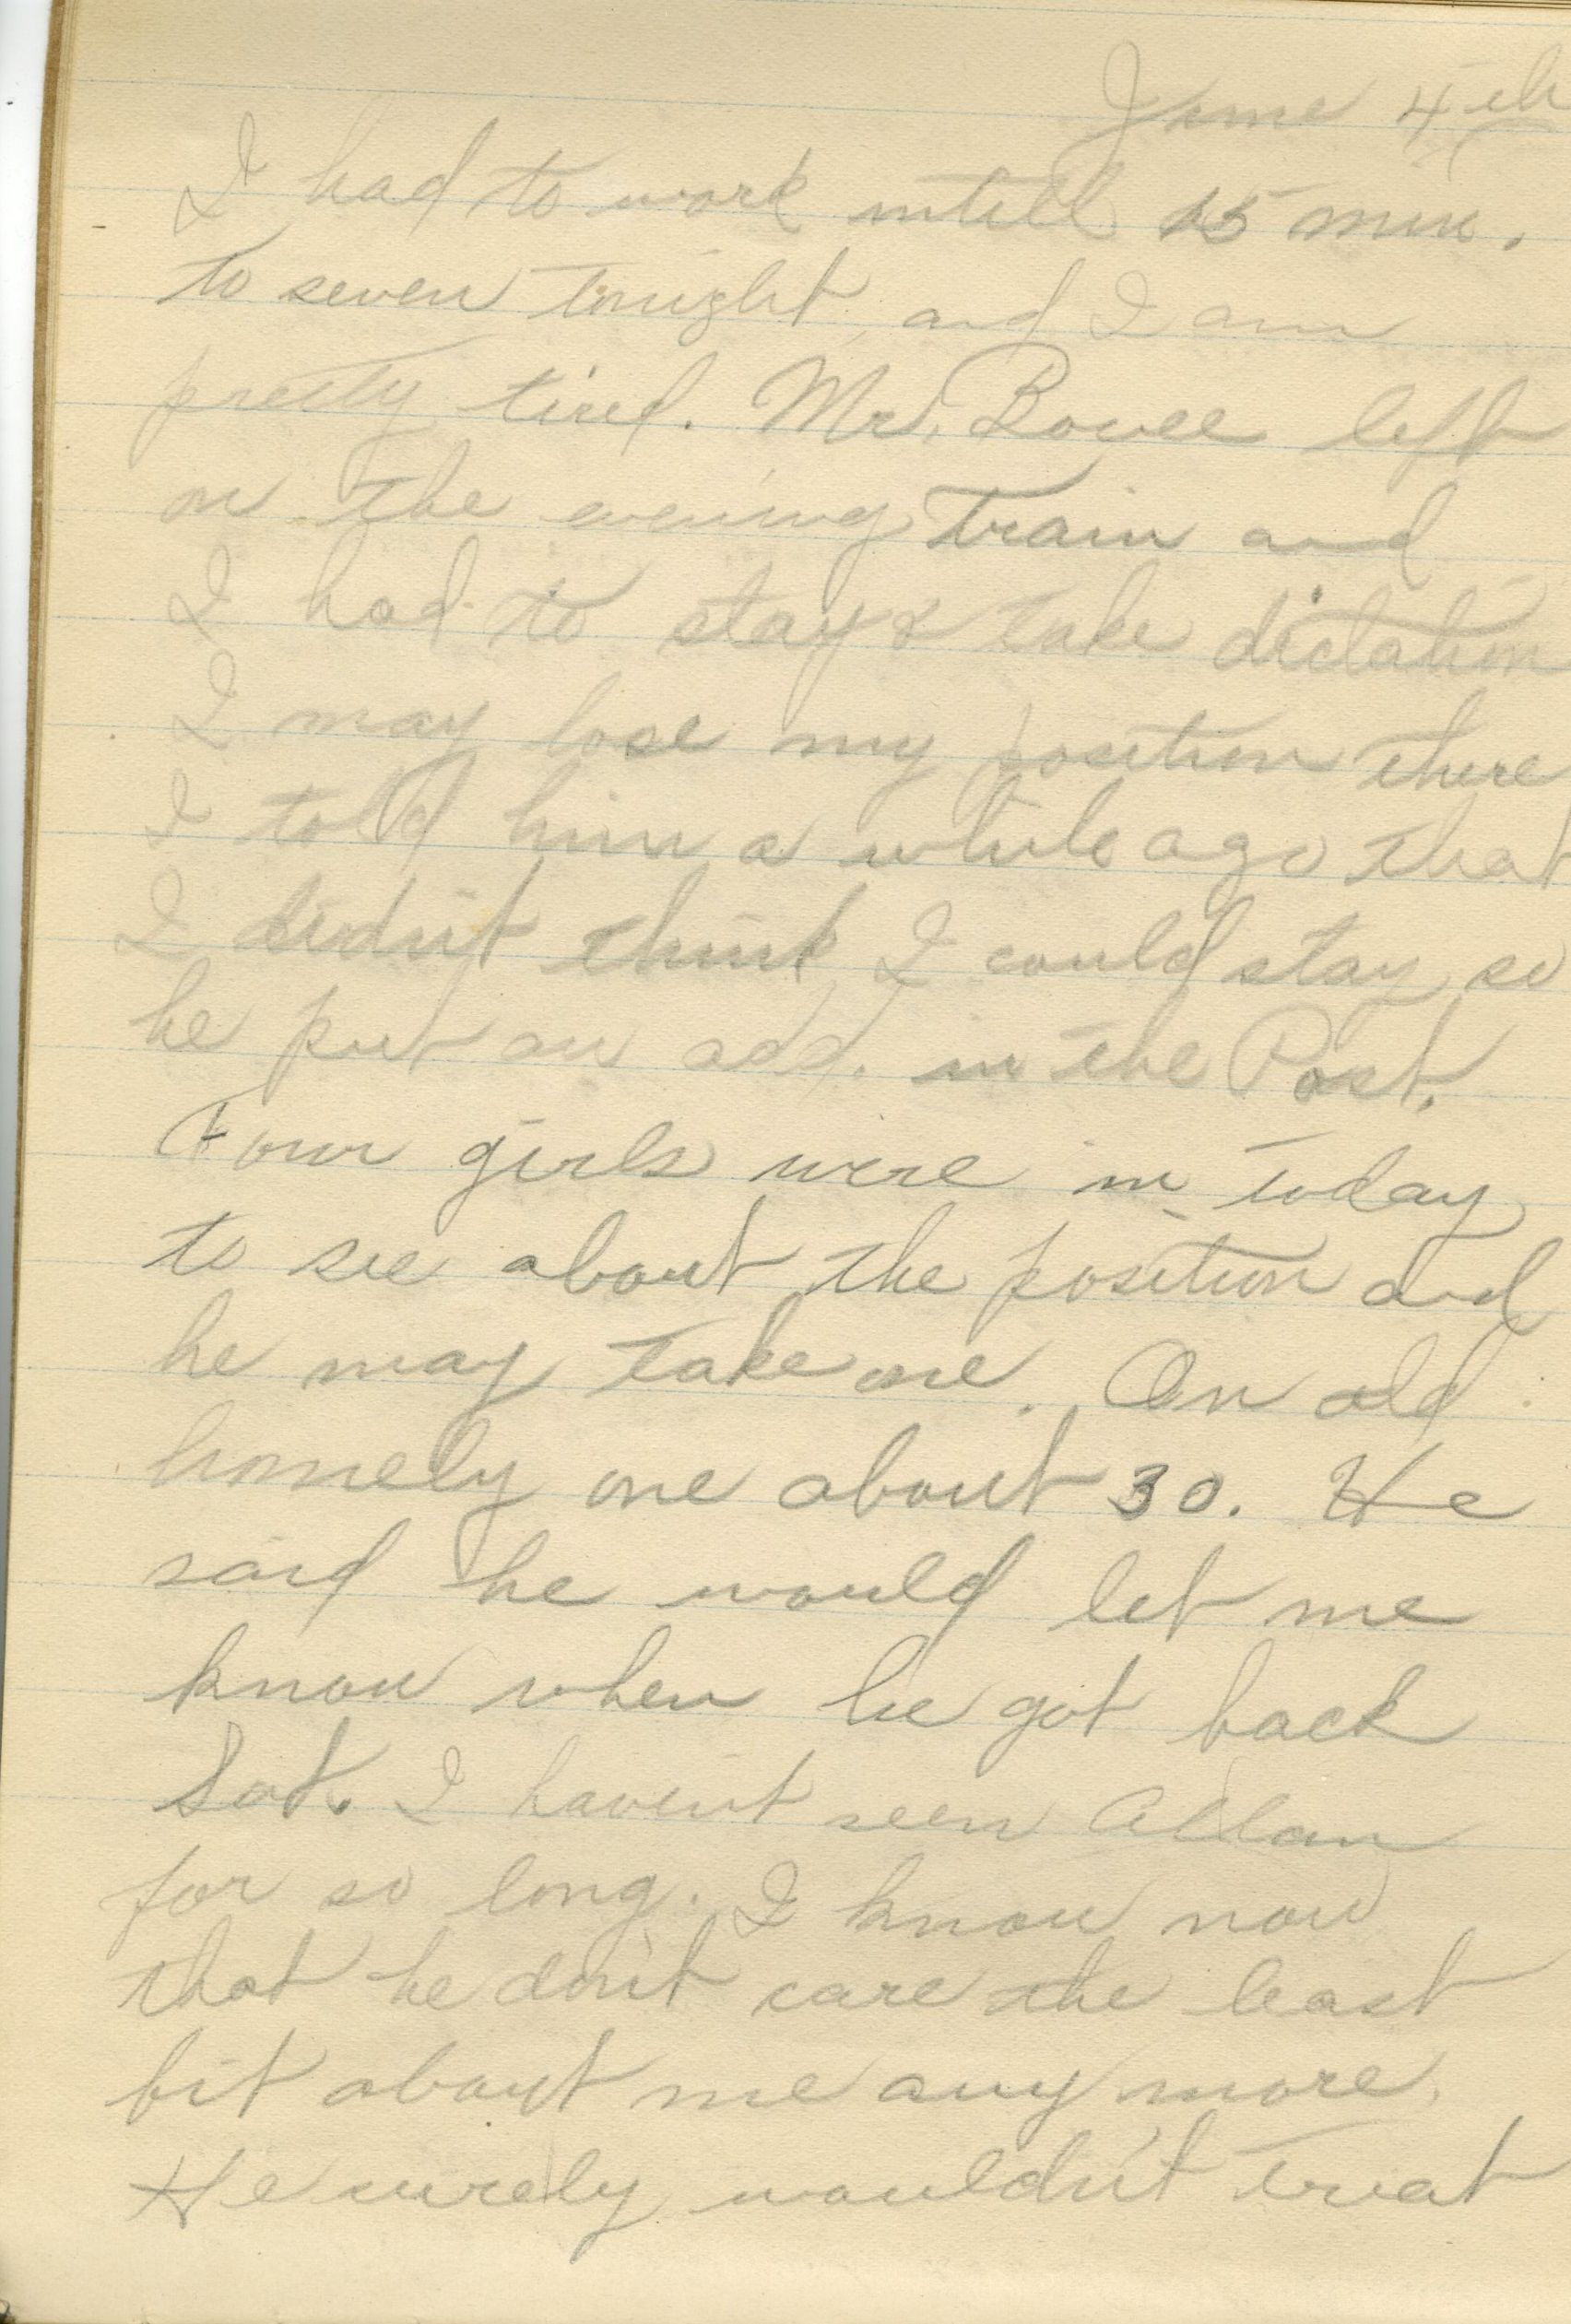 June 4th
I had to work untill 15 min.
to seven tonight and I am
pretty tired. Mr. left
on the evening train and
I had to stay & take dictation
I may lose my position there
I told him a while ago that
I didn't think I could stay so
he put an add. in the Post.
Four girls were in today
to see about the position and
he may take one. An old
homely one about 30. He
said he would let me
know when he got back
Sat. I haven't seen Allan
for so long. I know now
that he don't care the least
bit about me any more.
He surely wouldn't treat